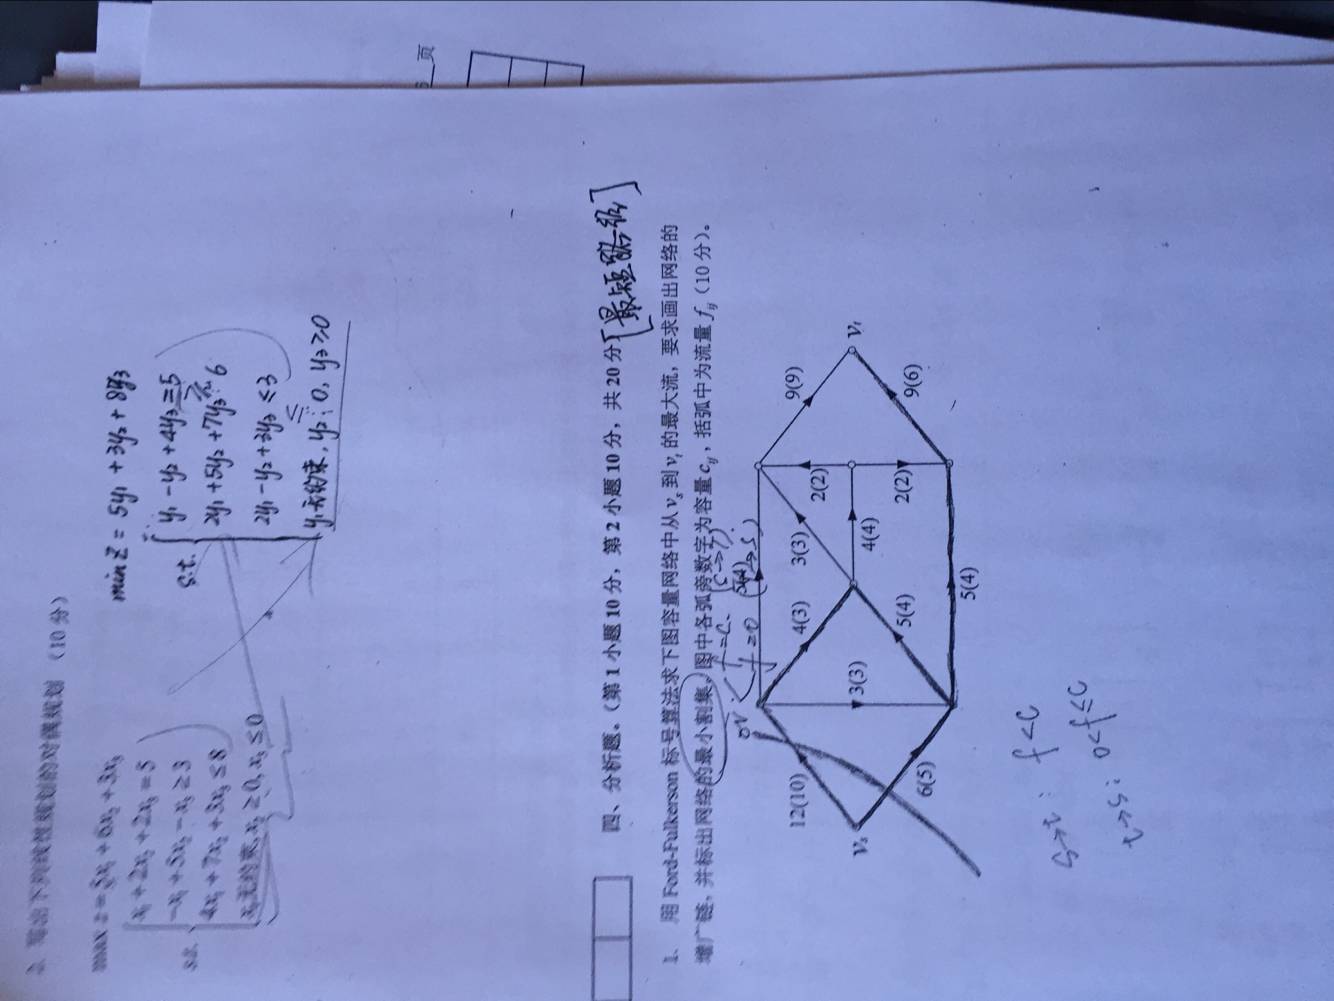 2. 写出下列线性规划的对偶规划 (10分)
max z = 5x₁ + 6x₂ + 3x₃
s.t.
x₁ + 2x₂ + 2x₃ = 5
-x₁ + 5x₂ - x₃ ≥ 3
4x₁ + 7x₂ + 3x₃ ≤ 8
x₁无约束, x₂ ≥ 0, x₃ ≤ 0
min Z = 5y₁ + 3y₂ + 8y₃
s.t.
y₁ - y₂ + 4y₃ = 5
2y₁ + 5y₂ + 7y₃ ≥ 6
2y₁ - y₂ + 3y₃ ≤ 3
y₁无约束, y₂ ≤ 0, y₃ ≥ 0
页
四、分析题。(第1小题10分，第2小题10分，共20分
[最短路径]
1. 用 Ford-Fulkerson 标号算法求下图容量网络中从 vₛ 到 vₜ 的最大流，要求画出网络的
增广链，并标出网络的最小割集。图中各弧旁数字为容量 cᵢⱼ，括弧中为流量 fᵢⱼ (10分)。
f=c. (s→T).
f=0 (T→S)
5(4)
12(10)
4(3)
3(3)
9(9)
2(2)
vₛ
3(3)
4(4)
vₜ
5(4)
2(2)
6(5)
9(6)
5(4)
s→t: f<c
t→s: 0<f≤c